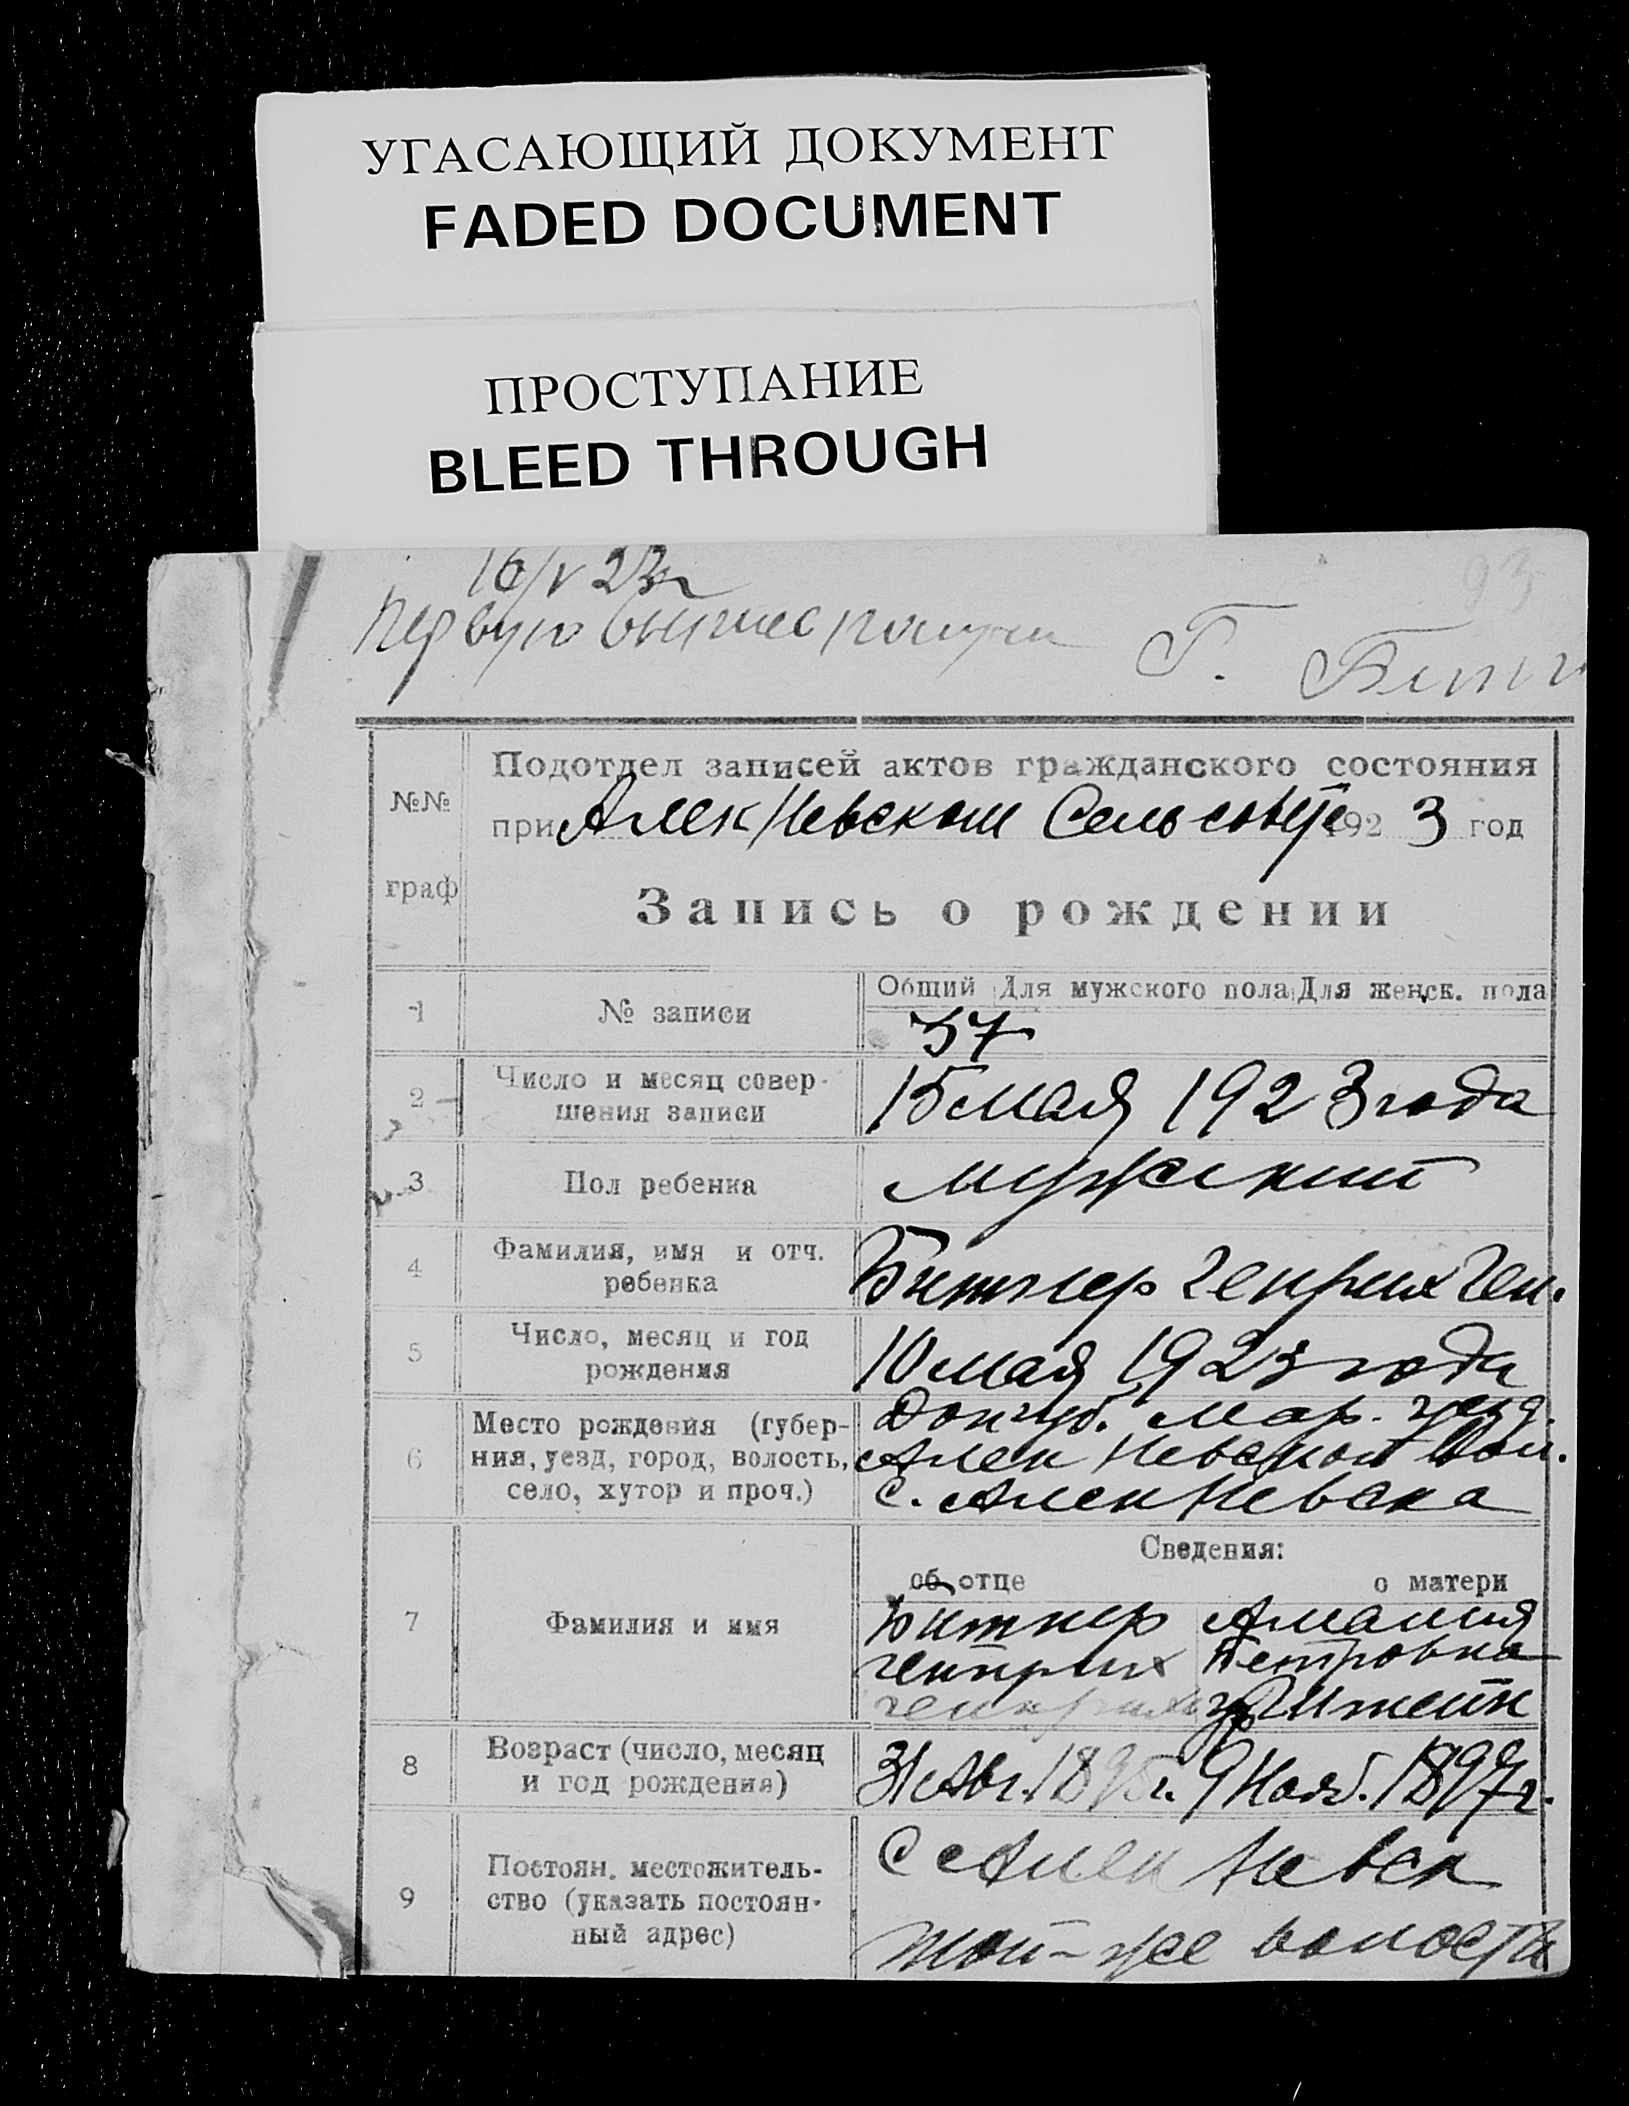 УГАСАЮЩИЙ ДОКУМЕНТ
FADED DOCUMENT
ПРОСТУПАНИЕ
BLEED THROUGH
93
16/V 23 г
Первую выпис получи Г. Битн
№№ граф
Подотдел записей актов гражданского состояния
при Алек Невском Сельсовете 1923 год
Запись о рождении
Общий Для мужского пола Для женск. пола
1 № записи 37
2 Число и месяц совер-
шения записи 15 мая 1923 года
3 Пол ребенка мужский
4 Фамилия, имя и отч.
ребенка Битнер Генрих Ген.
5 Число, месяц и год
рождения 10 мая 1923 года
6 Место рождения (губер- Дон губ. Мар. уезд.
ния, уезд, город, волость, Алек Невской вол.
село, хутор и проч.) с. Алек Невска
Сведения:
об отце о матери
7 Фамилия и имя Битнер Амалия
Генрих Петровна
Генрихов
8 Возраст (число, месяц
и год рождения) 31 Авг. 1895 г. 9 Нояб. 1897 г.
9 Постоян. местожитель- С Алек Невск
ство (указать постоян-
ный адрес) той-же волости